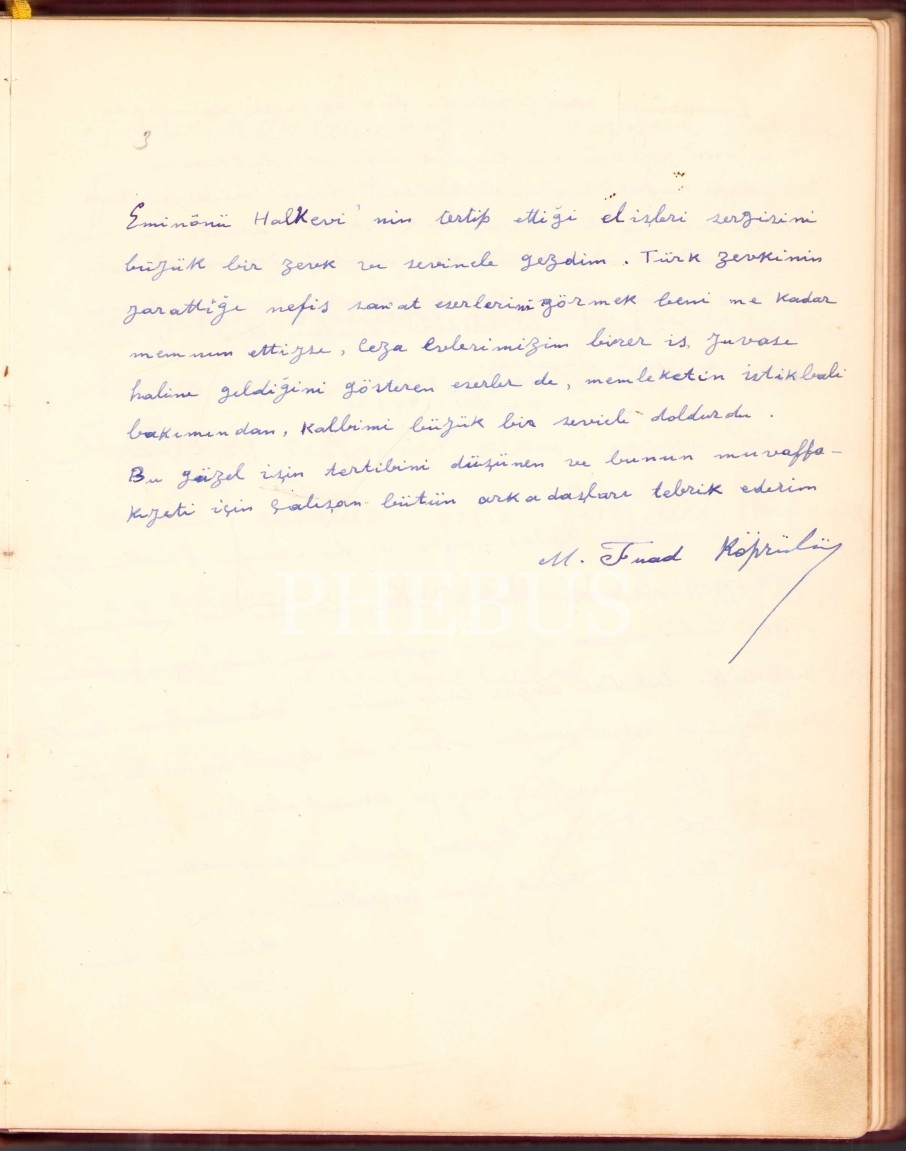 3
Eminönü Halkevi'nin tertip ettiği el işleri sergisini
büyük bir zevk ve sevincle gezdim. Türk zevkinin
yarattığı nefis san'at eserlerini görmek beni ne kadar
memnun ettiyse, Ceza Evlerimizin birer iş yuvası
haline geldiğini gösteren eserler de, memleketin istikbali
bakımından, kalbimi büyük bir sevicle doldurdu.
Bu güzel işin tertibini düşünen ve bunun muvaffa-
kıyeti için çalışan bütün arkadaşları tebrik ederim
M. Fuad Köprülü
PHEBUS